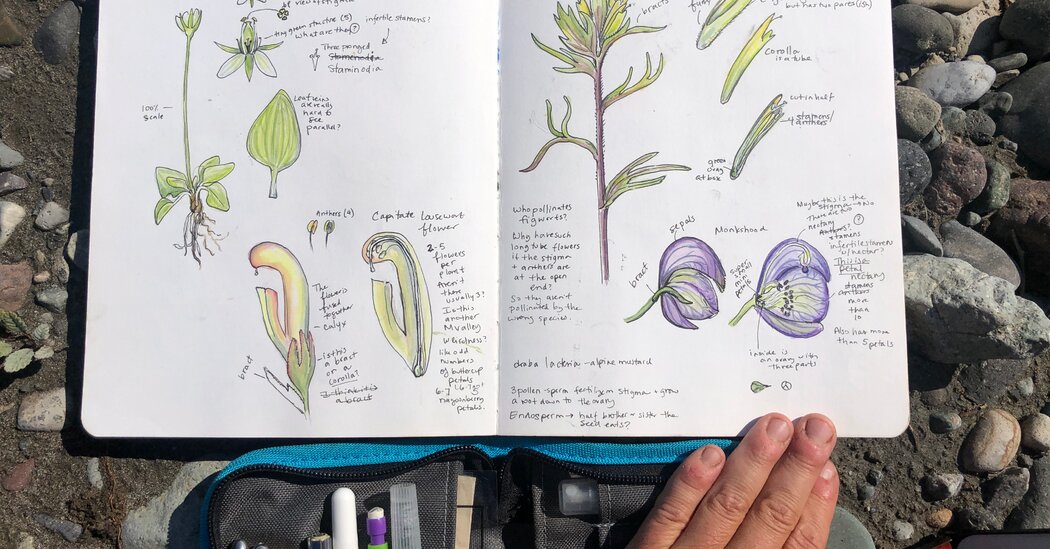 view of stigma
tiny green structure (5)
what are they?
infertile stamens?
Three pronged
Staminodia
100%
scale
Leaf veins
are really
hard to
see
parallel?
Anthers (4)
Capitate lousewort
flower
2-5
flowers
per
plant
Aren't
there
usually 3?
Is this
another
M valley
weirdness?
like odd
numbers
of buttercup
petals
6-7
nagoonberry
petals.
The
flower is
fused
together
- calyx
bract
- is this
a bract
or a
corolla?
I think it is
a bract
bracts
but has two parts (ish)
corolla
is a tube
cut in half
stamens/
4 anthers
green
ovary
at base
Who pollinates
figworts?
Why have such
long tube flowers
if the stigma
+ anthers are
at the open
end?
So they aren't
pollinated by the
wrong species.
sepals
Monkshood
bract
super
small
mini
petals
Maybe this is the
stigma → No
There are two
nectary
Anthers?
stamens
infertile stamens
w/nectar?
This is a
petal
nectary
stamens
anthers
more
than
10
Also has more
than 5 petals
inside is
an ovary with
three parts
draba lacteria - alpine mustard
3 pollen-sperm fertilize on stigma + grow
a root down to the ovary
Endosperm → half brother or sister the
seed eats?